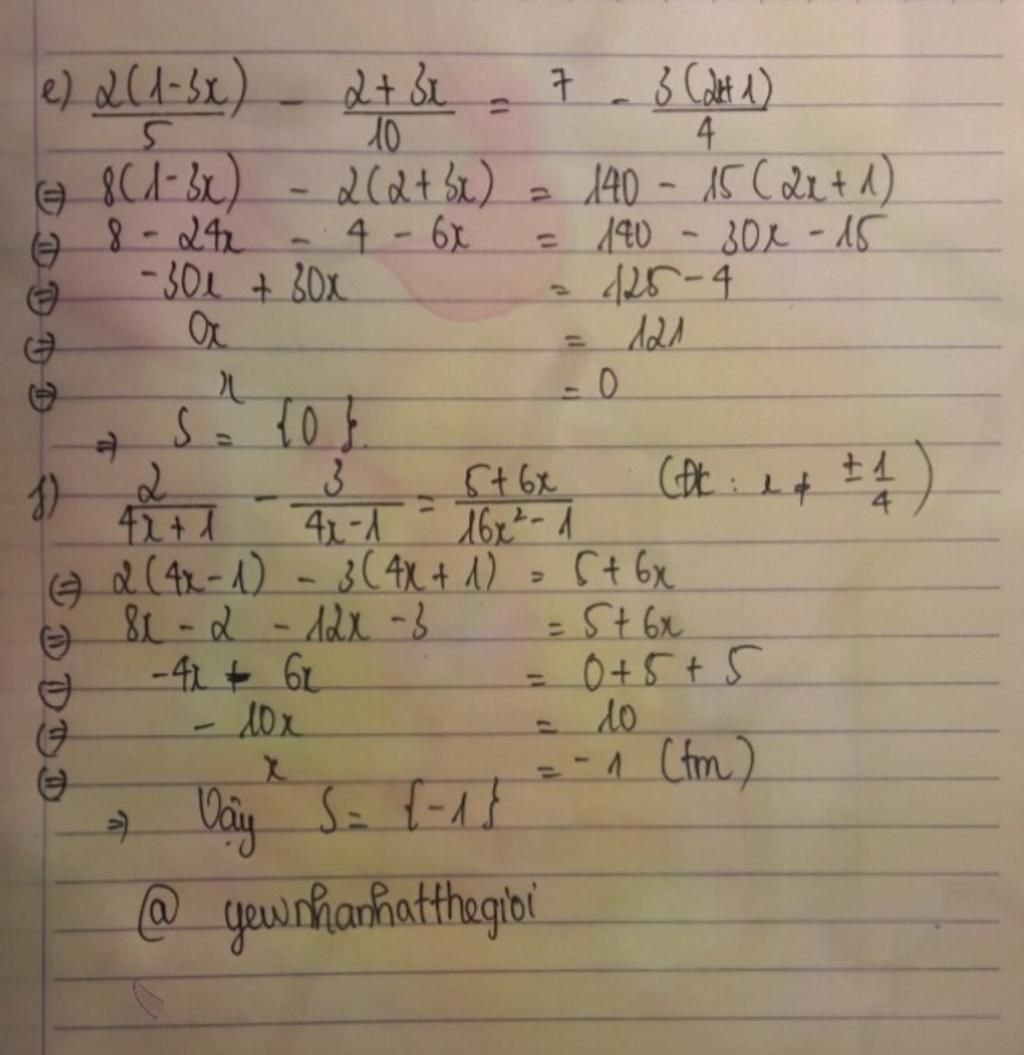 e) 2(1-3x)/5 - (2+3x)/10 = 7 - 3(2x+1)/4
⇔ 8(1-3x) - 2(2+3x) = 140 - 15(2x+1)
⇔ 8 - 24x - 4 - 6x = 140 - 30x - 15
⇔ -30x + 30x = 125 - 4
⇔ 0x = 121
⇔ x = 0
⇒ S = {0}.
f) 2/(4x+1) - 3/(4x-1) = (5+6x)/(16x²-1) (đk: x ≠ ±1/4)
⇔ 2(4x-1) - 3(4x+1) = 5+6x
⇔ 8x - 2 - 12x - 3 = 5+6x
⇔ -4x - 6x = 0+5+5
⇔ -10x = 10
⇔ x = -1 (tm)
⇒ Vậy S = {-1}
@ yewnhanhatthegioi